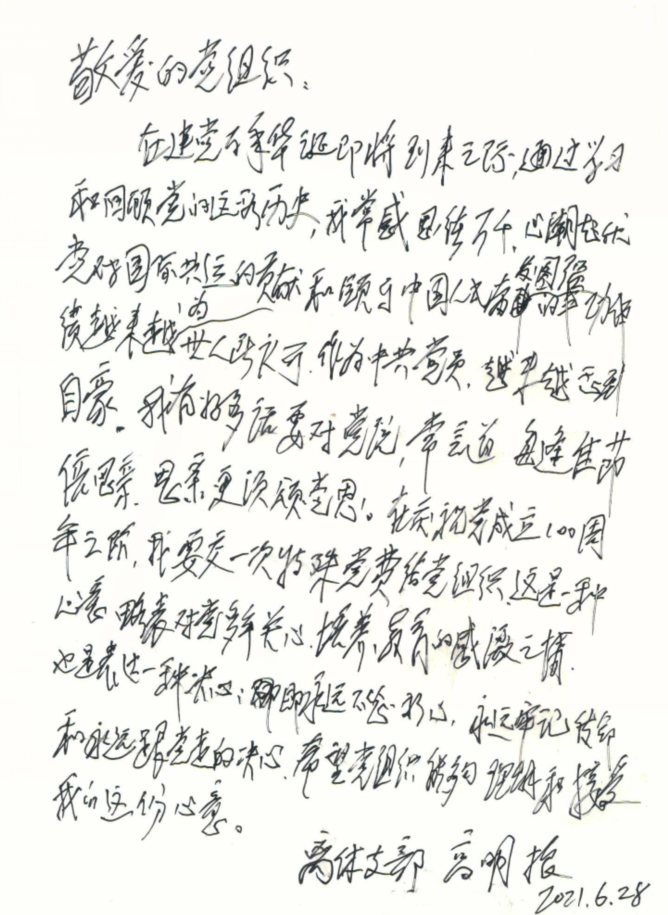 敬爱的党组织：
在建党百年华诞即将到来之际，通过学习
和回顾党的运动历史，我常感思绪万千，心潮起伏
党对国际共运的贡献和领导中国人民奋发图强的丰功伟
绩越来越为世人所认可，作为中共党员，越来越感到
自豪。我有好多话要对党说，常言道每逢佳节
倍思亲，思亲更须颂党恩！。在庆祝党成立100周
年之际，我要交一次特殊党费给党组织，这是一种
心意，略表对党多年关心、培养、教育的感激之情，
也是表达一种决心：即永远不忘初心，永远牢记使命
和永远跟党走的决心，希望党组织能够理解和接受
我的这份心意。
离休支部 高明
2021.6.28